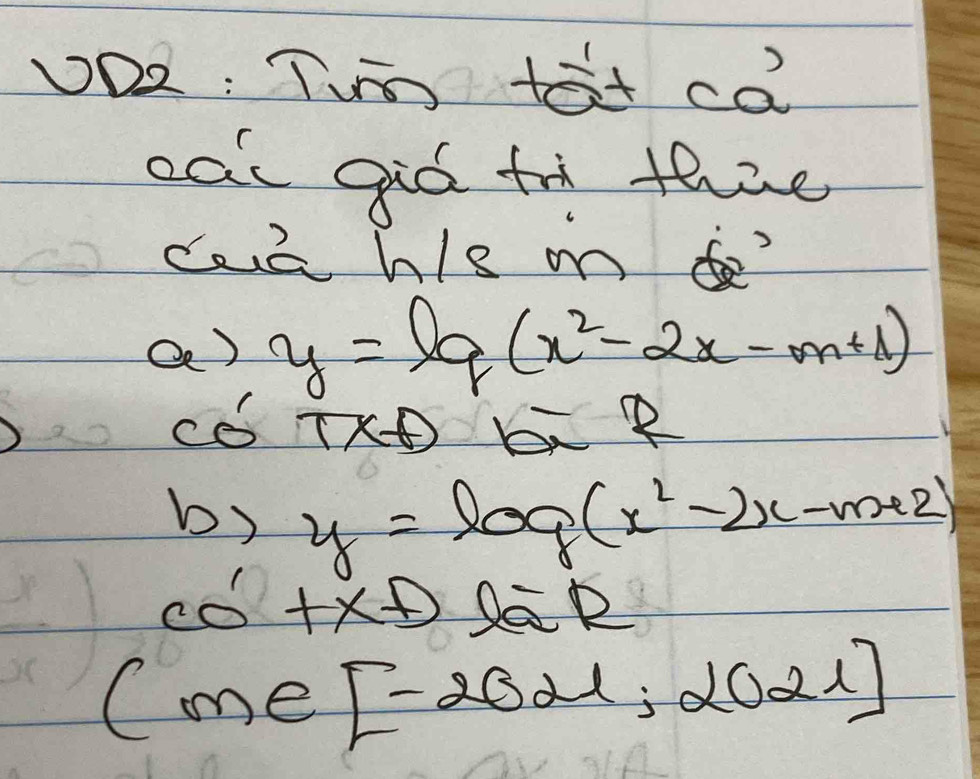 VD2 : Tìm tất cả
các giá trị thực
của h/s m để
a) y = log (x² - 2x - m + 1)
có TXĐ là R
b) y = log(x² - 2x - m + 2)
có TXĐ là R
(m ∈ [-2021; 2021]